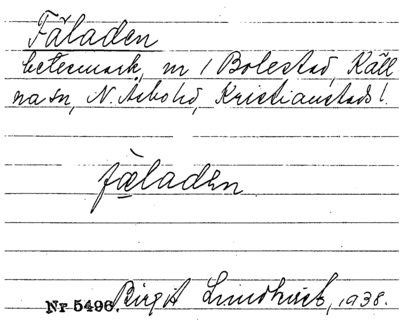 Fäladen
betesmark, nr 1 Bolestad, Käll
na sn, N. Åsbo hd, Kristianstads l.
fäladen
Nr 5496. Birgit Lundqvist, 1938.